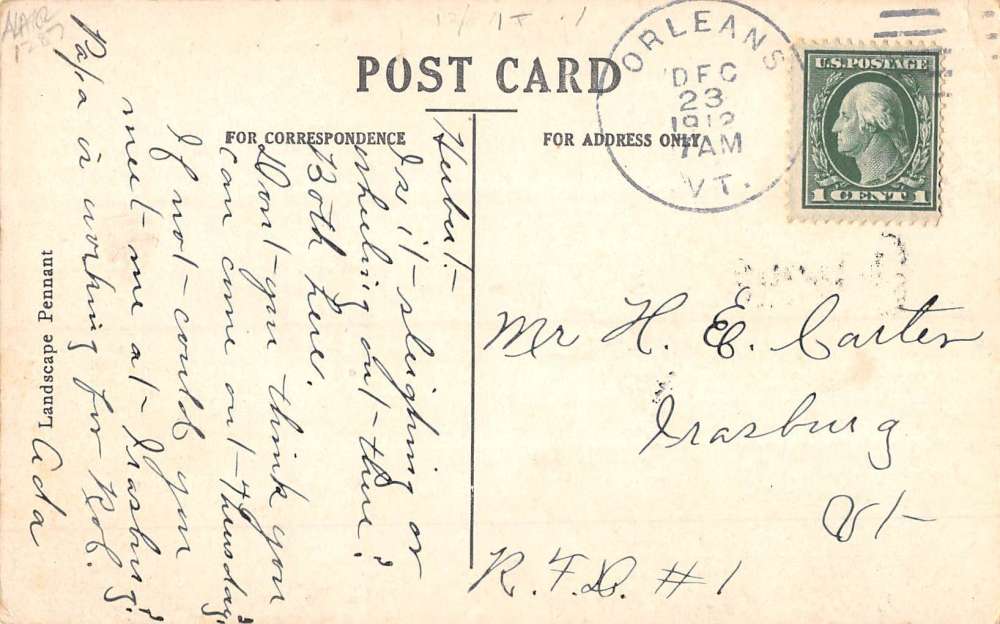 POST CARD
FOR CORRESPONDENCE
FOR ADDRESS ONLY
ORLEANS
DEC
23
1912
7 AM
VT.
U.S. POSTAGE
1 CENT 1
Hubert-
Is it sleighing or
wheeling out there?
Both here.
Don't you think you
can come out Thursday?
If not could you
meet me at Irasburg?
Papa is working for Rob.
Ada
Mr H. E. Carter
Irasburg
Vt-
R.F.D. #1
Landscape Pennant